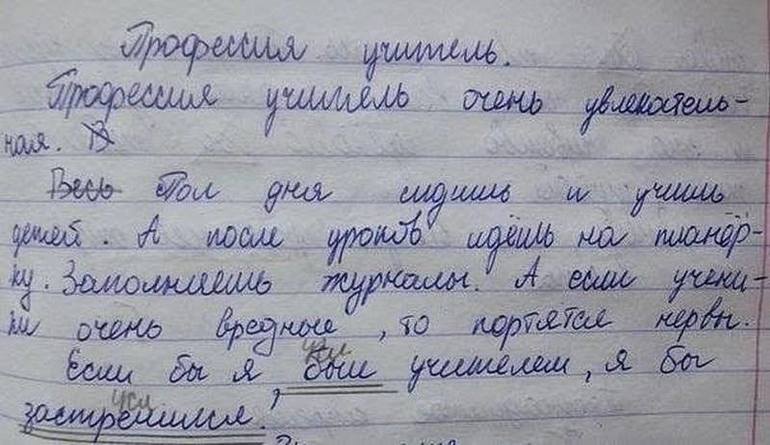 Профессия учитель.
Профессия учитель очень увлекатель-
ная. В
Весь Пол дня сидишь и учишь
детей. А после уроков идёшь на планёр-
ку. Заполняешь журналы. А если учени-
ки очень вредные, то портятся нервы.
Если бы я, был учителем, я бы
застрелился!